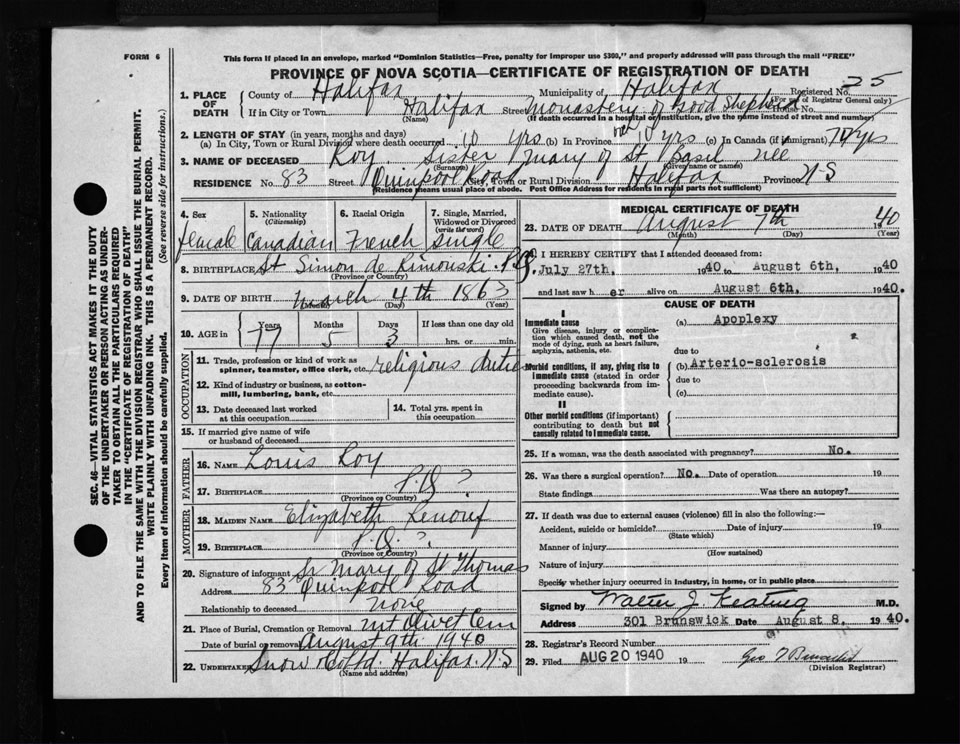 FORM 6
This form if placed in an envelope, marked "Dominion Statistics—Free, penalty for improper use $300," and properly addressed will pass through the mail "FREE"
PROVINCE OF NOVA SCOTIA—CERTIFICATE OF REGISTRATION OF DEATH
1. PLACE OF DEATH
County of Halifax Municipality of Halifax Registered No. 25
(For use of Registrar General only)
If in City or Town Halifax Street Monastery of Good Shepherd House No.
(Name) (If death occurred in a hospital or institution, give the name instead of street and number)
2. LENGTH OF STAY (in years, months and days)
(a) In City, Town or Rural Division where death occurred 10 yrs (b) In Province 10 yrs (c) In Canada (if immigrant) 70 yrs
3. NAME OF DECEASED Roy, Sister Mary of St Basil, nee
(Surname) (Given name or names)
RESIDENCE No. 83 Street Quinpool Road City, Town or Rural Division Halifax Province N-S
(Residence means usual place of abode. Post Office Address for residents in rural parts not sufficient)
4. Sex 5. Nationality (Citizenship) 6. Racial Origin 7. Single, Married, Widowed or Divorced (write the word)
female Canadian French single
8. BIRTHPLACE St Simon de Rimouski P.Q.
(Province or Country)
9. DATE OF BIRTH March 4th 1863
(Month) (Day) (Year)
10. AGE in Years Months Days If less than one day old
77 5 3 hrs. or min.
OCCUPATION
11. Trade, profession or kind of work as spinner, teamster, office clerk, etc. religious duties
12. Kind of industry or business, as cotton-mill, lumbering, bank, etc.
13. Date deceased last worked at this occupation
14. Total yrs. spent in this occupation
15. If married give name of wife or husband of deceased
FATHER
16. NAME Louis Roy
17. BIRTHPLACE P.Q. ?
(Province or Country)
MOTHER
18. MAIDEN NAME Elizabeth Renouf
19. BIRTHPLACE P.Q. ?
(Province or Country)
20. Signature of informant Sr Mary of St Thomas
Address 83 Quinpool Road
Relationship to deceased none
21. Place of Burial, Cremation or Removal Mt Olivet Cem
Date of burial or removal August 9th 1940
22. UNDERTAKER Snow & Co Ltd. Halifax. N-S
(Name and address)
MEDICAL CERTIFICATE OF DEATH
23. DATE OF DEATH August 7th 1940
(Month) (Day) (Year)
I HEREBY CERTIFY that I attended deceased from:
July 27th, 1940 to August 6th, 1940
and last saw her alive on August 6th, 1940.
CAUSE OF DEATH
I
Immediate cause
Give disease, injury or complication which caused death, not the mode of dying, such as heart failure, asphyxia, asthenia, etc.
(a) Apoplexy
due to
Morbid conditions, if any, giving rise to immediate cause (stated in order proceeding backwards from immediate cause).
(b) Arterio-sclerosis
due to
(c)
II
Other morbid conditions (if important) contributing to death but not causally related to immediate cause.
25. If a woman, was the death associated with pregnancy? No.
26. Was there a surgical operation? No. Date of operation 19
State findings Was there an autopsy?
27. If death was due to external causes (violence) fill in also the following:—
Accident, suicide or homicide? Date of injury 19
(State which)
Manner of injury
(How sustained)
Nature of injury
Specify whether injury occurred in industry, in home, or in public place
Signed by Walter J. Keating M.D.
Address 301 Brunswick Date August 8. 1940.
28. Registrar's Record Number
29. Filed AUG 20 1940 19
(Division Registrar)
SEC. 46—VITAL STATISTICS ACT MAKES IT THE DUTY
OF THE UNDERTAKER OR PERSON ACTING AS UNDER-
TAKER TO OBTAIN ALL THE PARTICULARS REQUIRED
IN THE "CERTIFICATE OF REGISTRATION OF DEATH"
AND TO FILE THE SAME WITH THE DIVISION REGISTRAR WHO SHALL ISSUE THE BURIAL PERMIT.
WRITE PLAINLY WITH UNFADING INK. THIS IS A PERMANENT RECORD.
Every item of information should be carefully supplied. (See reverse side for instructions.)